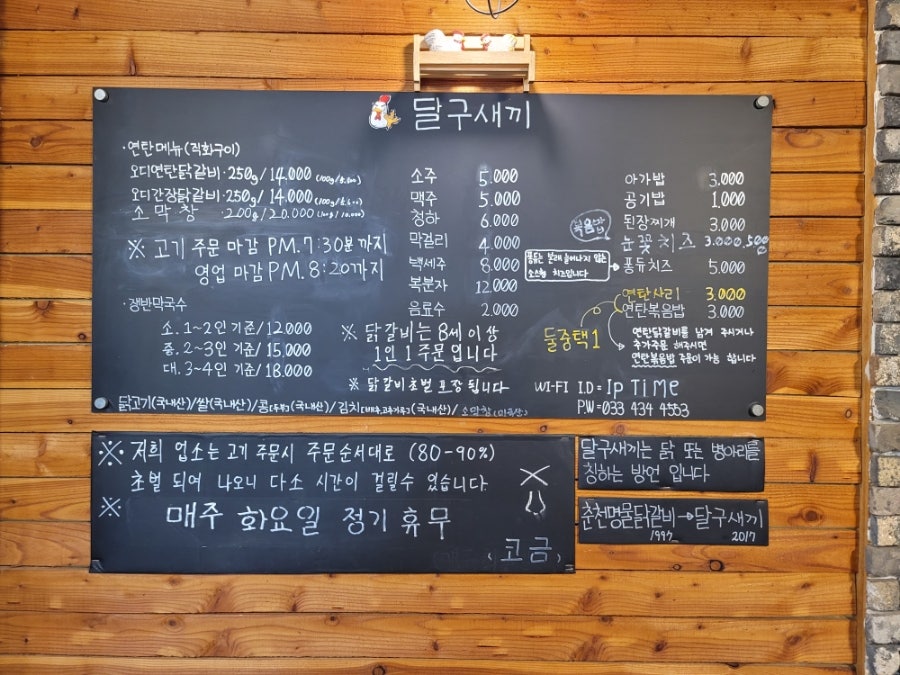 달구새끼
·연탄메뉴(직화구이)
오디연탄닭갈비·250g/14.000
오디간장닭갈비·250g/14.000
소막창·200g/20.000
※ 고기 주문 마감 PM.7:30분 까지
영업 마감 PM.8:20까지
·쟁반막국수
소.1~2인 기준/12.000
중.2~3인 기준/15,000
대.3~4인 기준/18.000
소주 5.000
맥주 5.000
청하 6.000
막걸리 4.000
백세주 8.000
복분자 12.000
음료수 2.000
※ 닭갈비는 8세 이상
1인 1주문 입니다
※ 닭갈비초벌 포장 됩니다
아가밥 3.000
공기밥 1.000
된장찌개 3.000
볶음밥
눈꽃치즈 3.000,500
퐁듀는 본래 늘어나지 않는
소스형 치즈입니다
퐁듀치즈 5.000
연탄사리 3.000
연탄볶음밥 3.000
둘중택1
연탄닭갈비를 남겨 주시거나
추가주문 해주시면
연탄볶음밥 주문이 가능 합니다
WI-FI I.D = Ip TiME
PW=033 434 4553
닭고기(국내산)/쌀(국내산)/콩[두부](국내산)/김치[배추,고추가루](국내산)/소막창
※ 저희 업소는 고기 주문시 주문순서대로 (80-90%)
초벌 되여 나오니 다소 시간이 걸릴수 있습니다.
※ 매주 화요일 정기 휴무
고금
달구새끼는 닭 또는 병아리를
칭하는 방언 입니다.
춘천명물닭갈비→달구새끼
1997 2017